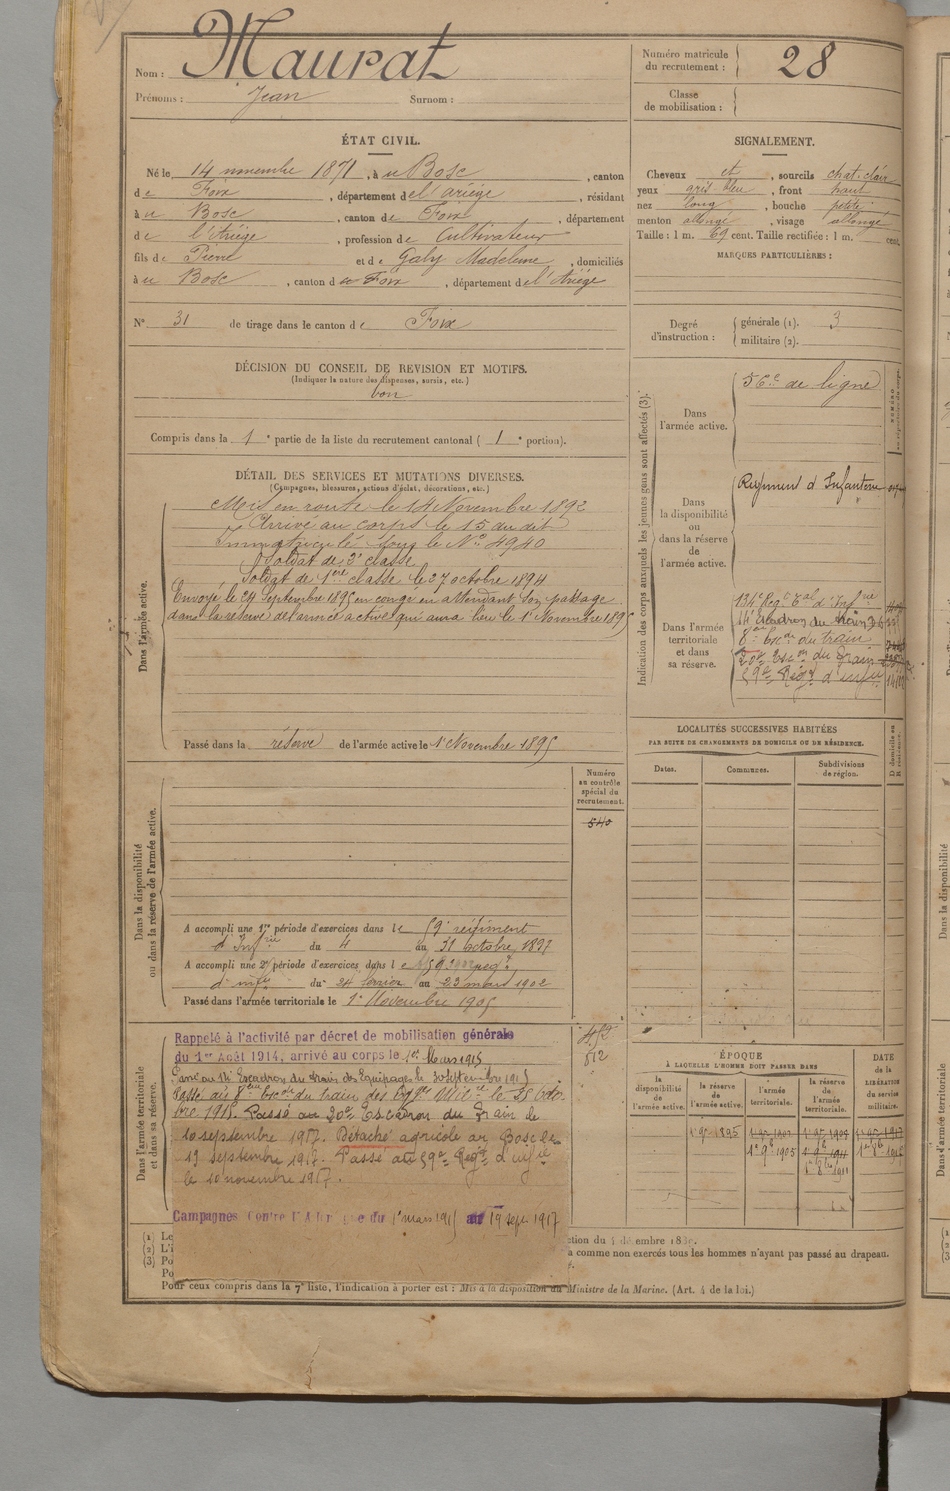 Nom : Maurat
Prénoms : Jean Surnom :
Numéro matricule du recrutement : 28
Classe de mobilisation :
ÉTAT CIVIL.
Né le 14 novembre 1871, à u Bosc, canton
d e Foix, département d e l'Ariège, résidant
à u Bosc, canton d e Foix, département
d e l'Ariège, profession d e Cultivateur
fils d e Pierre et d e Galy Madeleine, domiciliés
à u Bosc, canton d e Foix, département d e l'Ariège
N° 31 de tirage dans le canton d e Foix
SIGNALEMENT.
Cheveux et, sourcils chat. clair
yeux gris bleu, front haut
nez long, bouche petite
menton allongé, visage allongé
Taille : 1 m. 69 cent. Taille rectifiée : 1 m. cent.
MARQUES PARTICULIÈRES :
Degré d'instruction : générale (1). 3
militaire (2).
DÉCISION DU CONSEIL DE REVISION ET MOTIFS.
(Indiquer la nature des dispenses, sursis, etc.)
bon
Compris dans la 1e partie de la liste du recrutement cantonal ( 1e portion).
DÉTAIL DES SERVICES ET MUTATIONS DIVERSES.
(Campagnes, blessures, actions d'éclat, décorations, etc.)
Dans l'armée active.
Mis en route le 14 Novembre 1892
Arrivé au corps le 15 du dit
Immatriculé sous le N° 4940
Soldat de 2e classe
Soldat de 1ère classe le 27 octobre 1894
Envoyé le 24 Septembre 1895 en congé en attendant son passage
dans la réserve de l'armée active qui aura lieu le 1er Novembre 1895
Passé dans la réserve de l'armée active le 1er Novembre 1895
Indication des corps auxquels les jeunes gens sont affectés (3).
Dans l'armée active.
56e de ligne
Dans la disponibilité ou dans la réserve de l'armée active.
Régiment d'Infanterie
Dans l'armée territoriale et dans sa réserve.
134e Regt Tal d'Infrie
14e Escadron du train
8e Escon du train
20e Escon du Train
59e Regt d'infie
LOCALITÉS SUCCESSIVES HABITÉES
PAR SUITE DE CHANGEMENTS DE DOMICILE OU DE RÉSIDENCE.
Dates. Communes. Subdivisions de région.
Dans la disponibilité ou dans la réserve de l'armée active.
Numéro au contrôle spécial du recrutement.
540
A accompli une 1re période d'exercices dans l e 59e régiment
d'Infrie du 4 au 31 octobre 1897
A accompli une 2e période d'exercices dans l e 59e reg
d'infie du 24 février au 23 mars 1902
Passé dans l'armée territoriale le 1er Novembre 1905
Dans l'armée territoriale et dans sa réserve.
Rappelé à l'activité par décret de mobilisation générale
du 1er Août 1914, arrivé au corps le 1er Mars 1915
Passé au 14e Escadron du train des Equipages le 30 Septembre 1915
Passé au 8e Escon du train des Eqges Mil le 25 octo-
bre 1915. Passé au 20e Escadron du Train le
10 septembre 1917. Détaché agricole au Bosc le
19 septembre 1917. Passé au 59e Regt d'infie
le 10 novembre 1917.
Campagnes Contre l'Allemagne du 1er mars 1915 au 19 sept. 1917
812
ÉPOQUE
À LAQUELLE L'HOMME DOIT PASSER DANS
la disponibilité de l'armée active. la réserve de l'armée active. l'armée territoriale. la réserve de l'armée territoriale.
DATE de la LIBÉRATION du service militaire.
Pour ceux compris dans la 7e liste, l'indication à porter est : Mis à la disposition du Ministre de la Marine. (Art. 4 de la loi.)